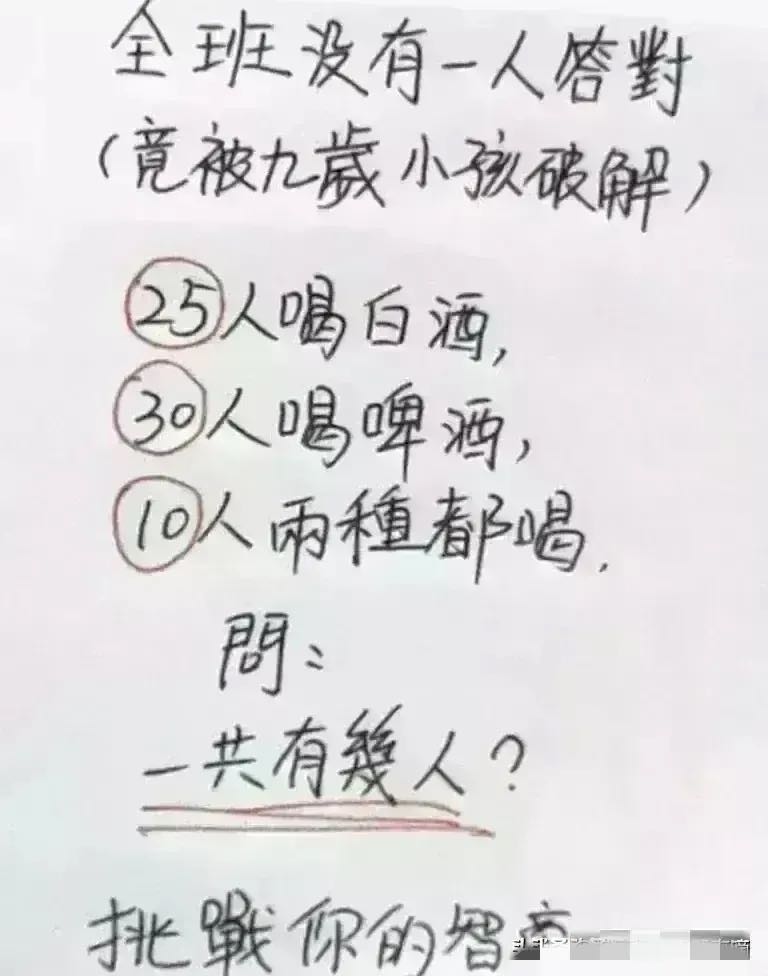 全班没有一人答對
（竟被九歲小孩破解）
25人喝白酒,
30人喝啤酒,
10人兩種都喝.
問:
一共有幾人?
挑戰你的智商